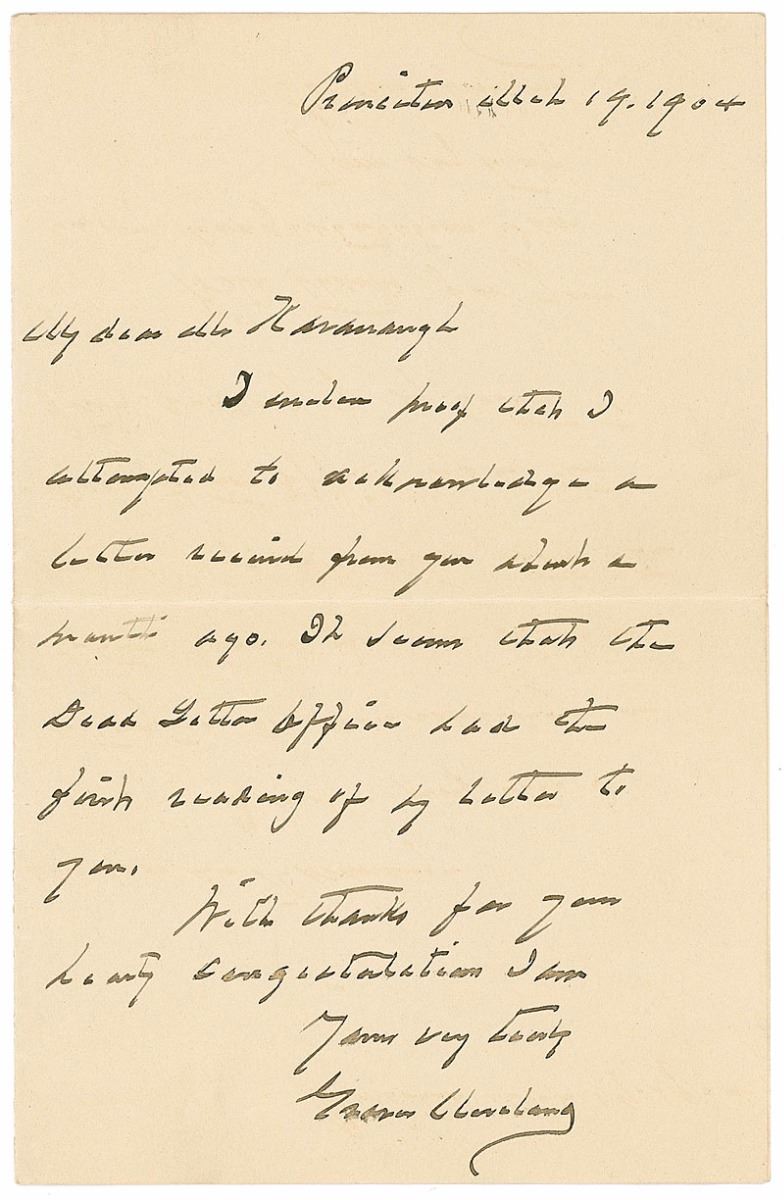 Princeton Mch 19, 1904
My dear Mr Kavanaugh
I enclose proof that I
attempted to acknowledge a
letter received from you about a
month ago. It seems that the
Dead Letter Office had the
first reading of my letter to
you.
With thanks for your
hearty congratulations I am
Yours very truly
Grover Cleveland